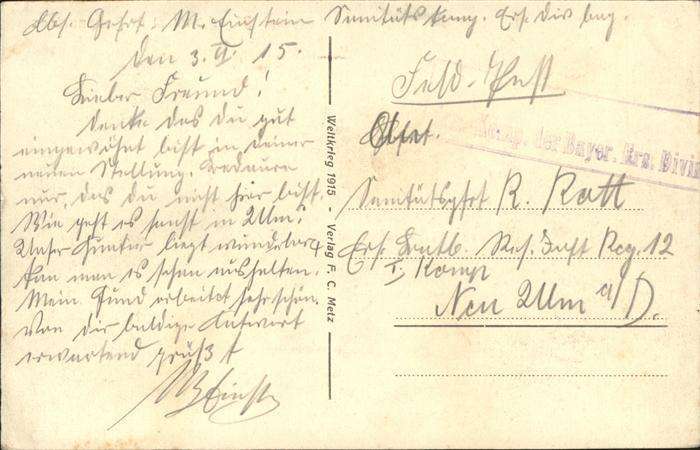 Abs. Gefrt. M. Einstein Sanitätskomp. Ers. Div. bay.
den 3. 15.
Lieber Freund!
Denke das du gut
eingewöhnt bist in deiner
neuen Stellung. Bedaure
nur, das du nicht hier bist.
Wie geht es sonst in Ulm?
Unser liegt wunderbar
kan man es schon aushalten.
Mein Hund arbeitet sehr schön.
Von dir baldige Antwort
erwartend grüßt
M Einst
Weltkrieg 1915 - Verlag F. C. Metz
Feld-Post
der Bayer. Ers. Divis
Sanitätsgfrt R. Katt
Ers. Batl. Res. Inft Reg. 12
I Komp
Neu Ulm a/D.